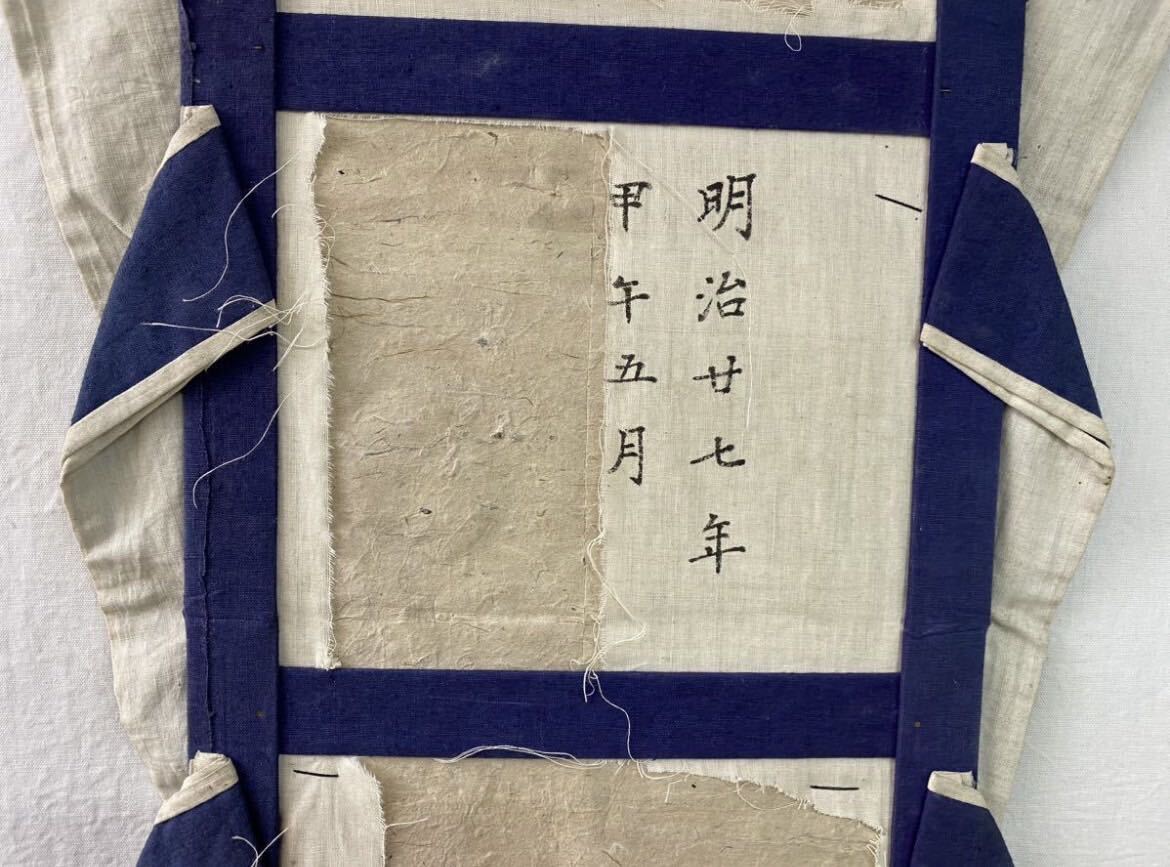 明治廿七年
甲午五月